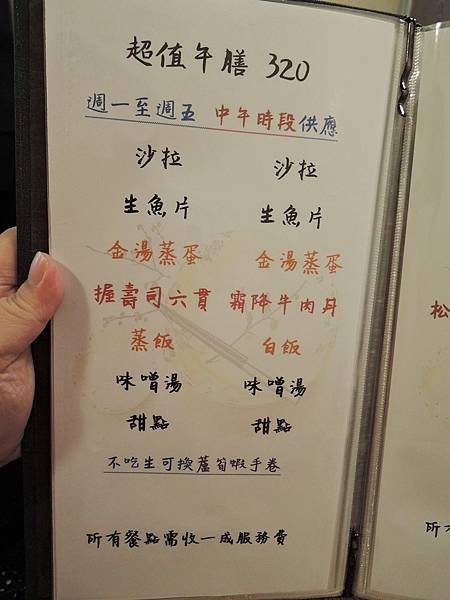 超值午膳 320
週一至週五 中午時段供應
沙拉 沙拉
生魚片 生魚片
金湯蒸蛋 金湯蒸蛋
握壽司六貫 霜降牛肉丹
蒸飯 白飯
味噌湯 味噌湯
甜點 甜點
不吃生可換蘆筍蝦手卷
所有餐點需收一成服務費
松
所